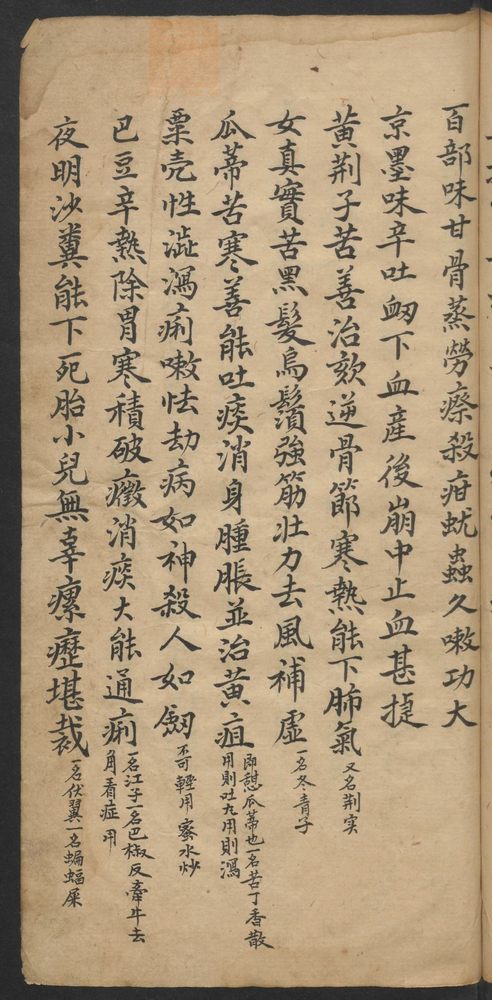 百部味甘骨蒸勞瘵殺疳蚘蟲久嗽功大
京墨味辛吐衂下血産後崩中止血甚捷
黄荆子苦善治欬逆骨節寒熱能下肺氣又名荆实
女真實苦黑髮烏鬚強筋壮力去風補虛一名冬青子
瓜蒂苦寒善能吐痰消身腫脹並治黄疸即甜瓜蒂也一名苦丁香散用則吐丸用則瀉
粟壳性澁瀉痢嗽怯劫病如神殺人如劒不可輕用蜜水炒
巴豆辛熱除胃寒積破癥消痰大能通痢一名江子一名巴椒反牽牛去角看症用
夜明沙糞能下死胎小兒無辜瘰癧堪裁一名伏翼一名蝙蝠屎